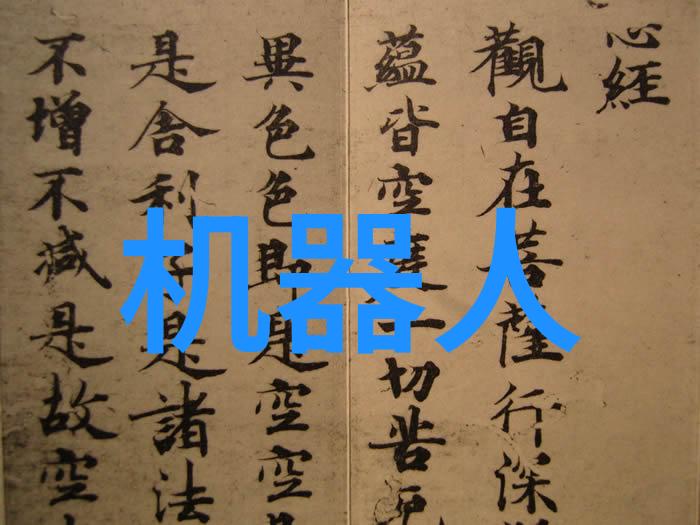 心經
觀自在菩薩行深
蘊皆空度一切苦厄
異色色即是空空
是舍利子是諸法
不增不減是故空
机器人